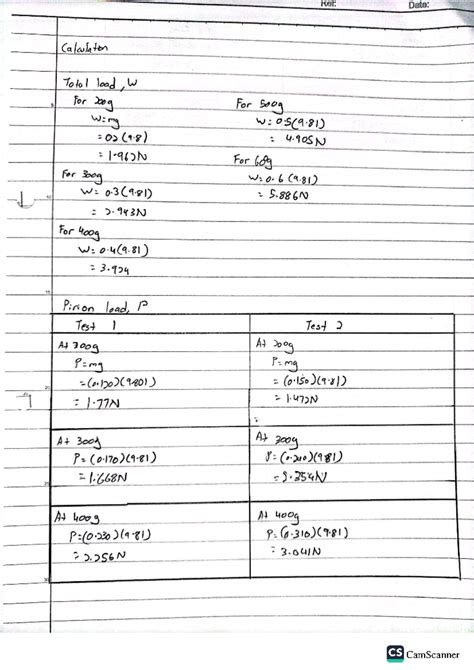 Ref: Date:
Calculation
Total load, W
For 200g
W=mg
= 0.2 (9.81)
= 1.962N
For 300g
W= 0.3(9.81)
= 2.943N
For 400g
W= 0.4(9.81)
= 3.924
For 500g
W= 0.5(9.81)
= 4.905N
For 60g
W= 0.6 (9.81)
= 5.886N
Pinion load, P
Test 1
At 200g
P=mg
=1.77N
At 300g
P= (0.170)(9.81)
= 1.668N
At 400g
P=(0.230)(9.81)
= 2.256N
Test 2
At 200g
P=mg
= (0.150)(9.81)
= 1.472N
At 300g
P= (0.240)(9.81)
= 2.354N
At 400g
P= (0.310)(9.81)
= 3.041N
CS CamScanner